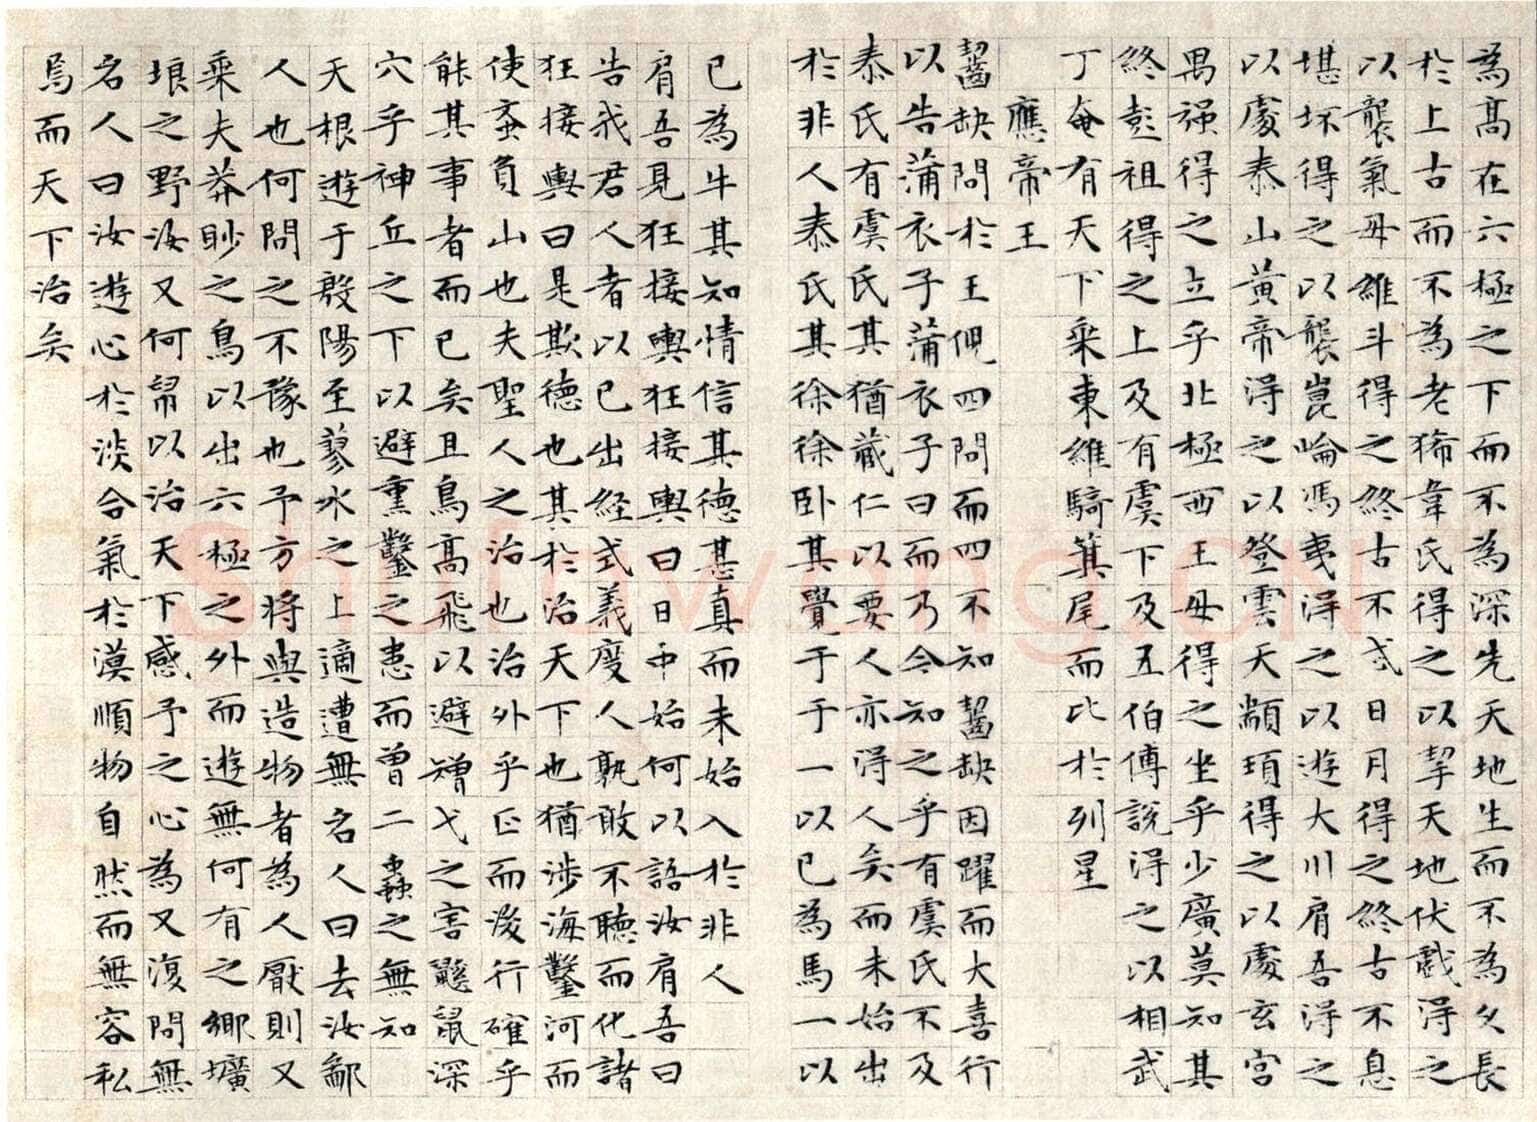 為高在六極之下而不為深先天地生而不為久長
於上古而不為老狶韋氏得之以挈天地伏戲得之
以襲氣母維斗得之終古不忒日月得之終古不息
堪坏得之以襲崑崘馮夷得之以遊大川肩吾得之
以處泰山黃帝得之以登雲天顓頊得之以處玄宮
禺强得之立乎北極西王母得之坐乎少廣莫知其
終彭祖得之上及有虞下及五伯傅說得之以相武
丁奄有天下乘東維騎箕尾而比於列星
應帝王
齧缺問於王倪四問而四不知齧缺因躍而大喜行
以告蒲衣子蒲衣子曰而乃今知之乎有虞氏不及
泰氏有虞氏其猶藏仁以要人亦得人矣而未始出
於非人泰氏其徐徐卧其覺于于一以已為馬一以
已為牛其知情信其德甚真而未始入於非人
肩吾見狂接輿狂接輿曰日中始何以語汝肩吾曰
告我君人者以已出經式義度人孰敢不聽而化諸
狂接輿曰是欺德也其於治天下也猶涉海鑿河而
使蚉負山也夫聖人之治也治外乎正而後行確乎
能其事者而已矣且鳥高飛以避矰弋之害鼷鼠深
穴乎神丘之下以避熏鑿之患而曾二蟲之無知
天根遊于殷陽至蓼水之上適遭無名人曰去汝鄙
人也何問之不豫也予方將與造物者為人厭則又
乘夫莽眇之鳥以出六極之外而遊無何有之鄉壙
埌之野汝又何帠以治天下感予之心為又復問無
名人曰汝遊心於淡合氣於漠順物自然而無容私
焉而天下治矣
Shufawang.CN